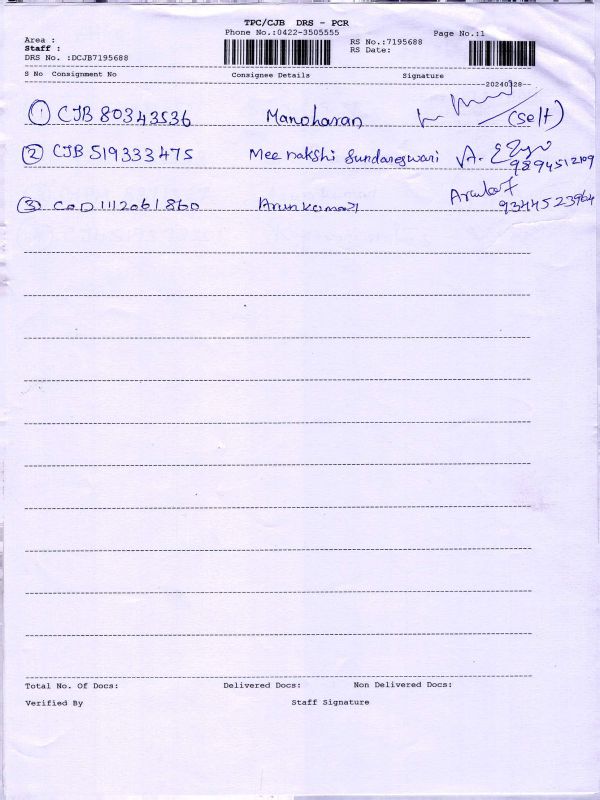 TPC/CJB DRS - PCR
Phone No.:0422-3505555
Page No.:1
Area :
RS No.:7195688
Staff :
RS Date:
DRS No. :DCJB7195688
S No Consignment No Consignee Details Signature
20240328
1 CJB 80343536 Manoharan (self)
2 CJB 519333475 Meenakshi Sundareswari 9894512109
3 COD1112061860 Arunkumar 9344523964
Total No. Of Docs: Delivered Docs: Non Delivered Docs:
Verified By Staff Signature